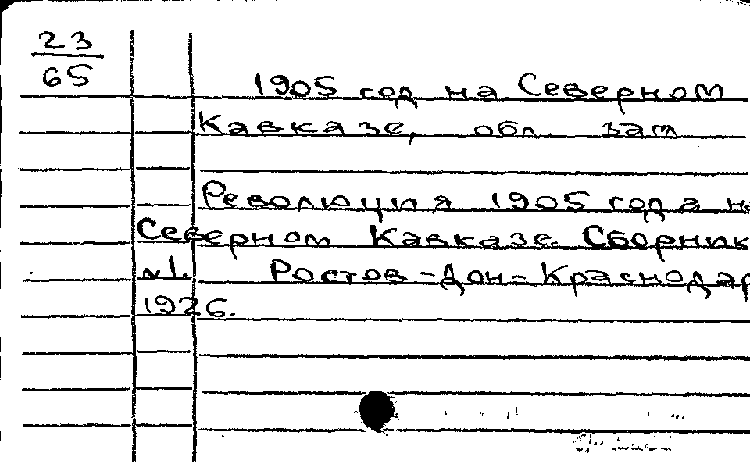 23
65
1905 год на Северном
Кавказе, обл. заг
Революция 1905 года на
Северном Кавказе. Сборник
№1. Ростов-Дон-Краснодар
1926.